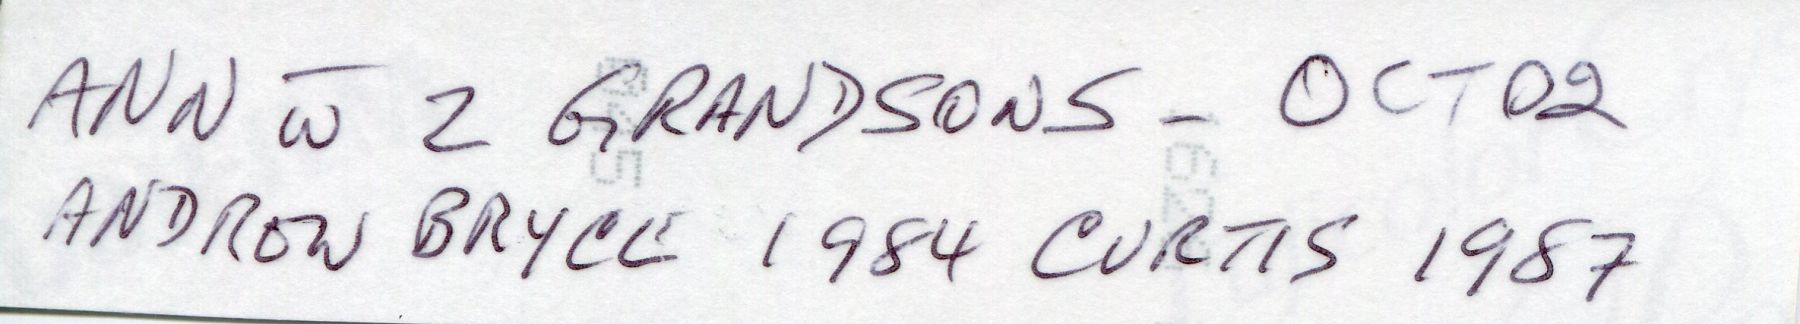 ANN w̄ 2 GRANDSONS - OCT 02
ANDREW BRYCE 1984 CURTIS 1987